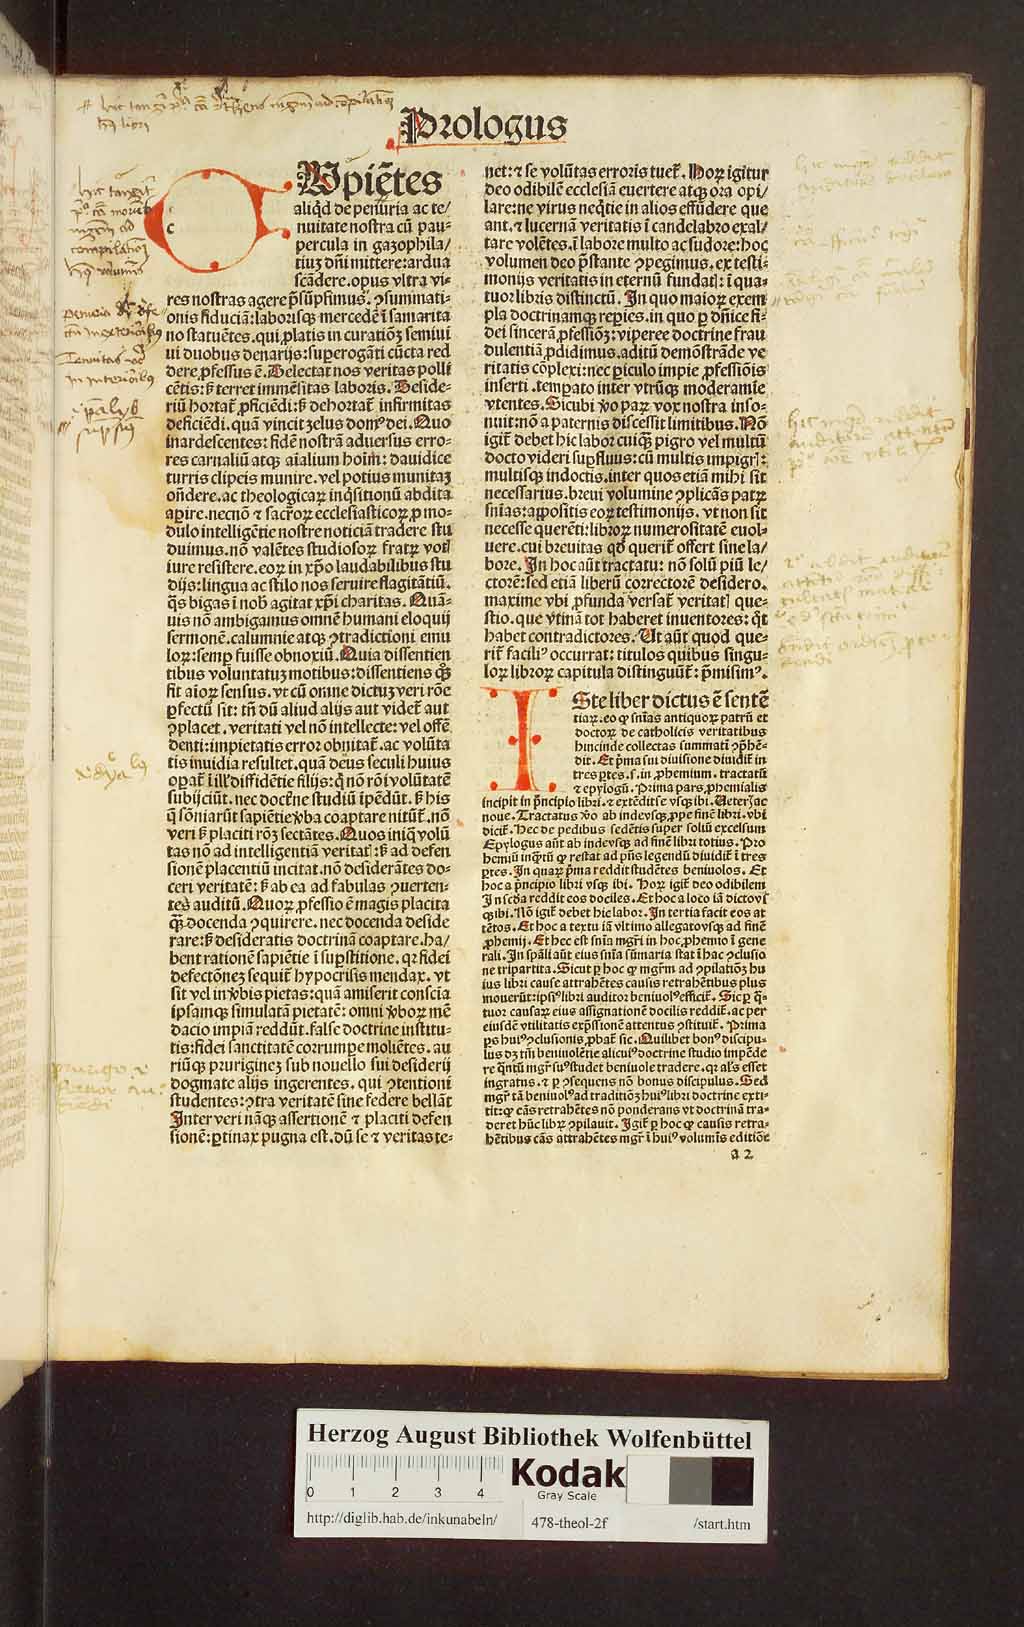 Prologus
CUpiẽtes
aliq̃d de penuria ac te/
nuitate nostra cũ pau-
percula in gazophila/
tiuꝫ dñi mittere: ardua
scãdere. opus vltra vi-
res nostras agere p̃sũpsimus. ꝯsummati-
onis fiduciã: laborisqꝫ mercedẽ ĩ samarita
no statuẽtes. qui ꝓlatis in curatiõꝫ semiui
ui duobus denarijs: suꝑerogãti cũcta red
dere ꝓfessus ẽ. Delectat nos veritas polli
cẽtis: sꝫ terret immẽsitas laboris. Deside-
riũ hortat᷑ ꝓficiẽdi: sꝫ dehortat᷑ infirmitas
deficiẽdi. quã vincit zelus domꝰ dei. Quo
inardescentes: fidẽ nostrã aduersus erro-
res carnaliũ atqꝫ aĩalium hoĩm: dauidice
turris clipeis munire. vel potius munitaꝫ
oñdere. ac theologicaꝝ inq̃sitionũ abdita
aꝑire. necnõ ⁊ sacr̃oꝝ ecclesiasticoꝝ ꝓ mo-
dulo intelligẽtie nostre noticiã tradere stu
duimus. nõ valẽtes studiosoꝝ fratꝝ votꝭ
iure resistere. eoꝝ in xp̃o laudabilibus stu
dijs: lingua ac stilo nos seruire flagitãtiũ.
q̃s bigas ĩ nob̾ agitat xp̃i charitas. Quã-
uis nõ ambigamus omnẽ humani eloquij
sermonẽ. calumnie atqꝫ ꝯtradictioni emu
loꝝ: semꝑ fuisse obnoxiũ. Quia dissentien
tibus voluntatuꝫ motibus: dissentiens qꝫ
fit aĩoꝝ sensus. vt cũ omne dictuꝫ veri rõe
ꝑfectũ sit: tñ dũ aliud alijs aut videt᷑ aut
ꝯplacet. veritati vel nõ intellecte: vel offẽ
denti: impietatis error obnitat᷑. ac volũta
tis inuidia resultet. quã deus seculi huius
oꝑat᷑ ĩ ill̾ diffidẽtie filijs: q̃ nõ rõi volũtatẽ
subijciũt. nec doct̃ne studiũ ĩpẽdũt. sꝫ his
q̃ sõniarũt sapiẽtie v̾ba coaptare nitũt᷑. nõ
veri sꝫ placiti rõꝫ sectãtes. Quos iniq̃ volũ
tas nõ ad intelligentiã veritatꝭ: sꝫ ad defen
sionẽ placentiũ incitat. nõ desiderãtes do-
ceri veritatẽ: sꝫ ab ea ad fabulas ꝯuerten-
tes auditũ. Quoꝝ ꝓfessio ẽ magis placita
qꝫ̃ docenda ꝯquirere. nec docenda deside
rare: sꝫ desideratis doctrinã coaptare. ha/
bent rationẽ sapiẽtie ĩ suꝑstitione. qꝛ fidei
defectõneꝫ sequit᷑ hypocrisis mendax. vt
sit vel in v̾bis pietas: quã amiserit consciã
ipsamqꝫ simulatã pietatẽ: omni v̾boꝝ mẽ
dacio impiã reddũt. false doctrine institu-
tis: fidei sanctitatẽ corrumꝑe moliẽtes. au
riũqꝫ prurigineꝫ sub nouello sui desiderij
dogmate alijs ingerentes. qui ꝯtentioni
studentes: ꝯtra veritatẽ sine federe bellãt
Inter veri nãqꝫ assertionẽ ⁊ placiti defen
sionẽ: ꝑtinax pugna est. dũ se ⁊ veritas te-
net: ⁊ se volũtas erroris tuet᷑. Hoꝝ igitur
deo odibilẽ ecclesiã euertere atqꝫ ora opi/
lare: ne virus neq̃tie in alios effũdere que
ant. ⁊ lucernã veritatis ĩ candelabro exal/
tare volẽtes. ĩ labore multo ac sudore: hoc
volumen deo p̃stante ꝯpegimus. ex testi-
monijs veritatis in eternũ fundatꝭ: ĩ qua-
tuor libris distinctũ. In quo maioꝝ exem
pla doctrinamqꝫ reꝑies. in quo ꝑ dñice fi-
dei sincerã ꝓfessiõꝫ: viperee doctrine frau
dulentiã ꝓdidimus. aditũ demõstrãde ve
ritatis cõplexi: nec ꝑiculo impie ꝓfessiõis
inserti. tempato inter vtrũqꝫ moderamĩe
vtentes. Sicubi v̾o paꝝ vox nostra inso-
nuit: nõ a paternis discessit limitibus. Nõ
igit᷑ debet hic labor cuiqꝫ̃ pigro vel multũ
docto videri suꝑfluus: cũ multis impigrꝭ:
multisqꝫ indoctis. inter quos etiã mihi sit
necessarius. breui volumine ꝯplicãs patꝝ
sñias: aꝓpositis eoꝝ testimonijs. vt non sit
necesse querẽti: libroꝝ numerositatẽ euol-
uere. cui breuitas qḋ querit᷑ offert sine la/
bore. In hoc aũt tractatu: nõ solũ piũ le/
ctorẽ: sed etiã liberũ correctorẽ desidero.
maxime vbi ꝓfunda versat᷑ veritatꝭ que-
stio. que vtinã tot haberet inuentores: q̃t
habet contradictores. Ut aũt quod que-
rit᷑ faciliꝰ occurrat: titulos quibus singu-
loꝝ libroꝝ capitula distinguũt᷑: p̃misimꝰ.
ISte liber dictus ẽ sentẽ
tiaꝝ. eo ꝙ sñias antiquoꝝ patrũ et
doctoꝝ de catholicis veritatibus
hincinde collectas summatĩ ꝯp̃hẽ-
dit. Et p̃ma sui diuisione diuidit᷑ in
tres ꝑtes. s. in ꝓhemium. tractatũ
⁊ epylogũ. Prima pars ꝓhemialis
incipit in p̃ncipio libri. ⁊ extẽdit se vsqꝫ ibi. Ueterꝭ ac
noue. Tractatus v̾o ab indevsqꝫ ꝓpe finẽ libri. vbi
dicit᷑. Hec de pedibus sedẽtis super soliũ excelsum
Epylogus aũt ab indevsqꝫ ad finẽ libri totius. Pro
hemiũ inq̃tũ ꝙ restat ad p̃ns legendũ diuidit᷑ ĩ tres
ꝑtes. In quaꝝ p̃ma reddit studẽtes beniuolos. Et
hoc a p̃ncipio libri vsqꝫ ibi. Hoꝝ igit᷑ deo odibilem
In scḋa reddit eos dociles. Et hoc a loco iã dicto vsꝫ
qꝫ ibi. Nõ igit᷑ debet hic labor. In tertia facit eos at
tẽtos. Et hoc a textu iã vltimo allegato vsqꝫ ad finẽ
ꝓhemij. Et hec est sñia mgr̃i in hoc ꝓhemio ĩ gene
rali. In sp̃ali aũt eius sñia sũmaria stat ĩ hac ꝯclusio
ne tripartita. Sicut ꝑ hoc ꝙ mgr̃m ad ꝯpilatiõꝫ hu
ius libri cause attrahẽtes causis retrahẽtibus plus
mouerũt: ipsiꝰ libri auditor beniuolꝰ efficit᷑. Sic ꝑ q̃-
tuor causaꝝ eius assignationẽ docilis reddit᷑. ac per
eiusdẽ vtilitatis exp̃ssionẽ attentus ꝯstituit᷑. Prima
ꝑs huiꝰ ꝯclusionis ꝓbat᷑ sic. Quilibet bonꝰ discipu-
lus dꝫ tm̃ beniuolẽtie alicuiꝰ doctrine studio impẽde
re q̃ntũ mgr̃ suꝰ studet beniuole tradere. qꝛ al̾s esset
ingratus. ⁊ ꝑ ꝯsequens nõ bonus discipulus. Sed
mgr̃ tã beniuolꝰ ad traditiõꝫ huiꝰ libri doctrine exti-
tit: ꝙ cãs retrahẽtes nõ ponderans vt doctrinã tra-
deret hũc librꝝ ꝯpilauit. Igit᷑ ꝑ hoc ꝙ causis retra-
hẽtibus cãs attrahẽtes mgr̃ ĩ huiꝰ volumĩs editiõe
a 2
Herzog August Bibliothek Wolfenbüttel
0 1 2 3 4
Kodak
Gray Scale
http://diglib.hab.de/inkunabeln/ 478-theol-2f /start.htm